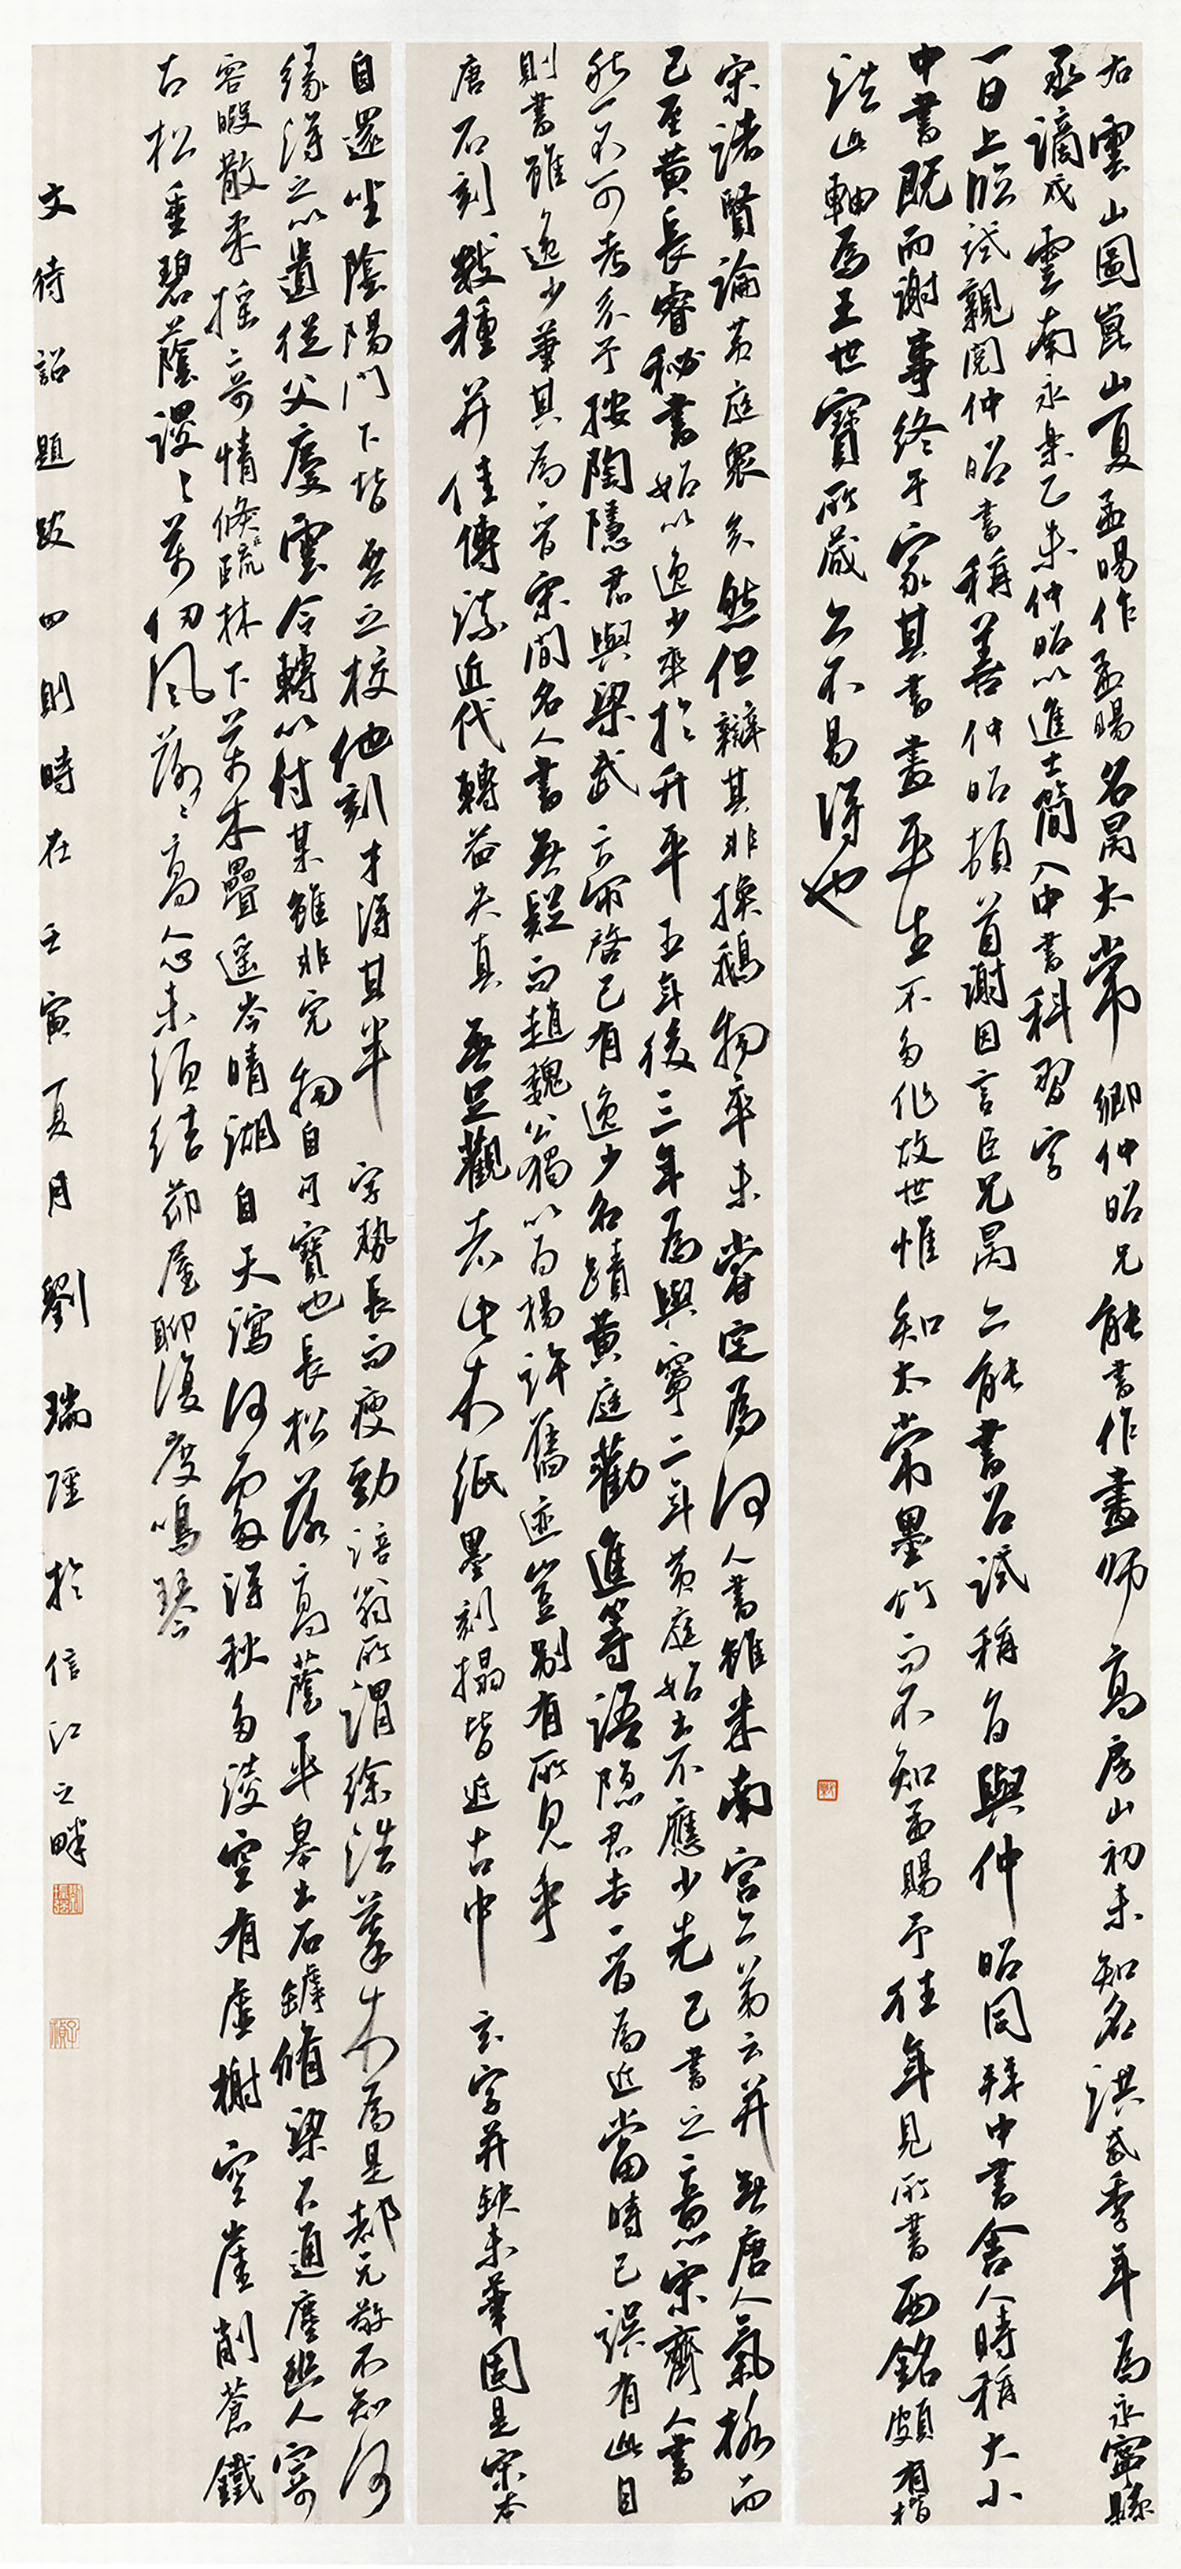 右雲山圖崑山夏孟暘作孟暘名昺太常卿仲昭兄能書作畫師高房山初未知名洪武季年為永寧縣
丞謫戍雲南永樂乙未仲昭以進士簡入中書科習字
一日上臨試親閱仲昭書稱善仲昭頓首謝因言臣兄昺亦能書召試稱旨與仲昭同拜中書舍人時稱大小
中書既而謝事終于家其書畫平生不多作故世惟知太常墨竹而不知孟暘予往年見所書西銘頗有楷
法此軸為王世寶所藏亦不易得也
宋諸賢論黃庭眾矣然但辯其非換鵝物率未嘗定為何人書雖米南宮亦第云並無唐人氣格而
已至黃長睿秘書始以逸少卒於升平五年後三年為興寧二年黃庭始出不應少先已書之意宋齊人書
然不可考矣予按陶隱君與梁武言帝啓已有逸少名蹟黃庭勸進等語隱君去晉為近當時已誤有此目
則書雖逸少筆其為晉宋間名人書無疑而趙魏公獨以為楊許舊迹豈別有所見乎
唐石刻數種并佳傳流近代轉益失真無足觀者此本紙墨刻搨皆近古中玄字并缺末筆固是宋本
自還坐陰陽門下皆無之校他刻才得其半字勢長而瘦勁涪翁所謂徐浩摹本為是郝元敬不知何
緣得之以遺從父慶雲令轉以付某雖非完物自可寶也長松落高蔭平皋出石罅脩梁不通塵幽人寄
容暇散策揺搖奇情倏疏林下葉木疊遥岑晴湖自天瀉何處得秋多淩空有虛榭空崖削蒼鐵
古松垂碧蔭謖謖萬仞風落落高人心未須結茆屋聊復度鳴琴
文待詔題跋四則時在壬寅夏月劉瑞陞於信江之畔